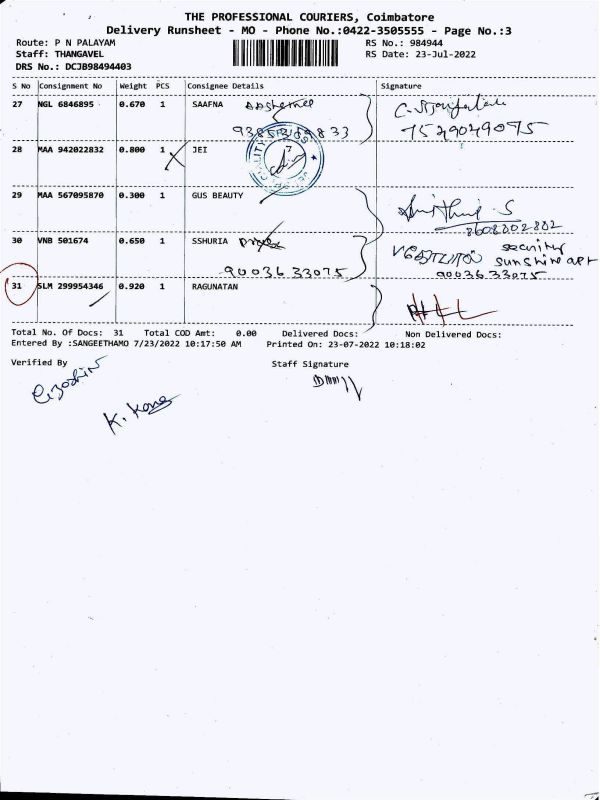 THE PROFESSIONAL COURIERS, Coimbatore
Delivery Runsheet - MO - Phone No.:0422-3505555 - Page No.:3
Route: P N PALAYAM RS No.: 984944
Staff: THANGAVEL RS Date: 23-Jul-2022
DRS No.: DCJB98494403
S No Consignment No Weight PCS Consignee Details Signature
27 NGL 6846895 0.670 1 SAAFNA
7529029075
28 MAA 942022832 0.800 1 JEI
QUALITY
29 MAA 567095870 0.300 1 GUS BEAUTY
S
8608802882
30 VNB 501674 0.650 1 SSHURIA
security
sunshine apt
9003633075 9003633075
31 SLM 299954346 0.920 1 RAGUNATAN
Total No. Of Docs: 31 Total COD Amt: 0.00 Delivered Docs: Non Delivered Docs:
Entered By :SANGEETHAMO 7/23/2022 10:17:50 AM Printed On: 23-07-2022 10:18:02
Verified By Staff Signature